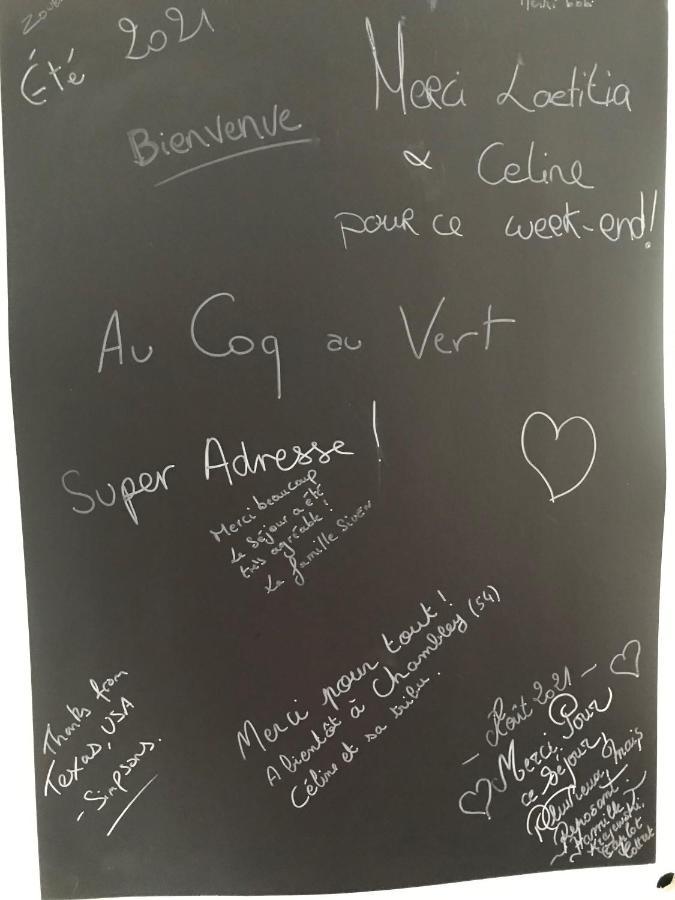 Été 2021
Bienvenue
Merci Laetitia
& Celine
pour ce week-end!
Au Coq au Vert
Super Adresse !
Merci beaucoup
Le séjour a été
très agréable !
La famille
Merci pour tout !
A bientôt à Chambley (54)
Céline et sa tribu.
Thanks from
Texas, USA
- Simpsons.
- Août 2021 -
Merci Pour
ce Séjour,
Pluvieux mais
Reposant
Famille